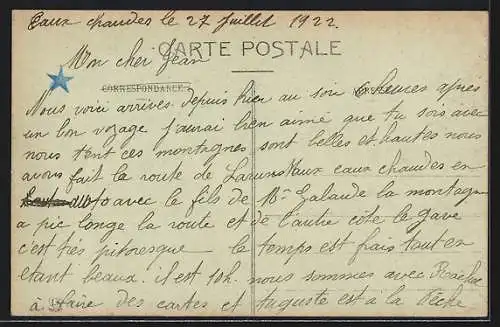 Eaux chaudes le 27 Juillet 1922.
CARTE POSTALE
Mon cher Jean
CORRESPONDANCE
Nous voici arrives depuis hier au soir 6 heures apres
un bon voyage j'aurai bien aimé que tu sois avec
nous tant ces montagnes sont belles et hautes nous
avons fait le route de Laruns aux eaux chaudes en
auto avec le fils de Mr Galaude la montagne
a pic longe la route et de l'autre côte le gave
c'est très pitoresque le temps est frais tout en
etant beaux. il est 10h. nous sommes avec
à faire des cartes et Auguste est à la Pêche